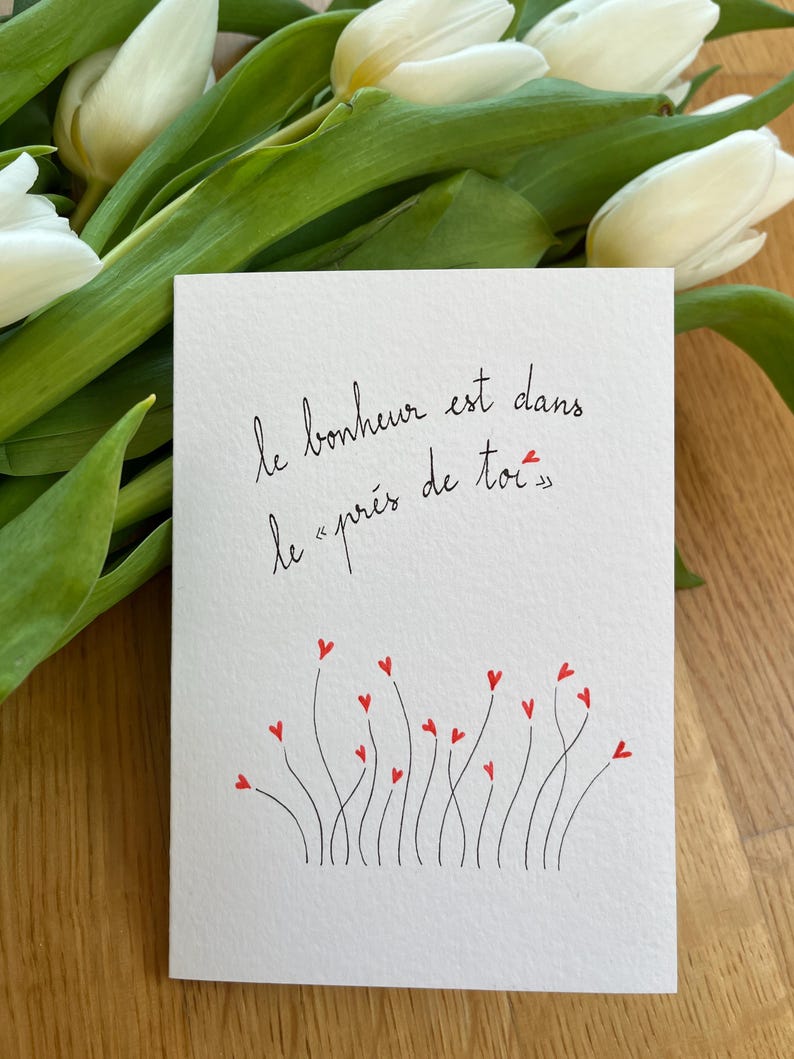 le bonheur est dans
le « prés de toi »